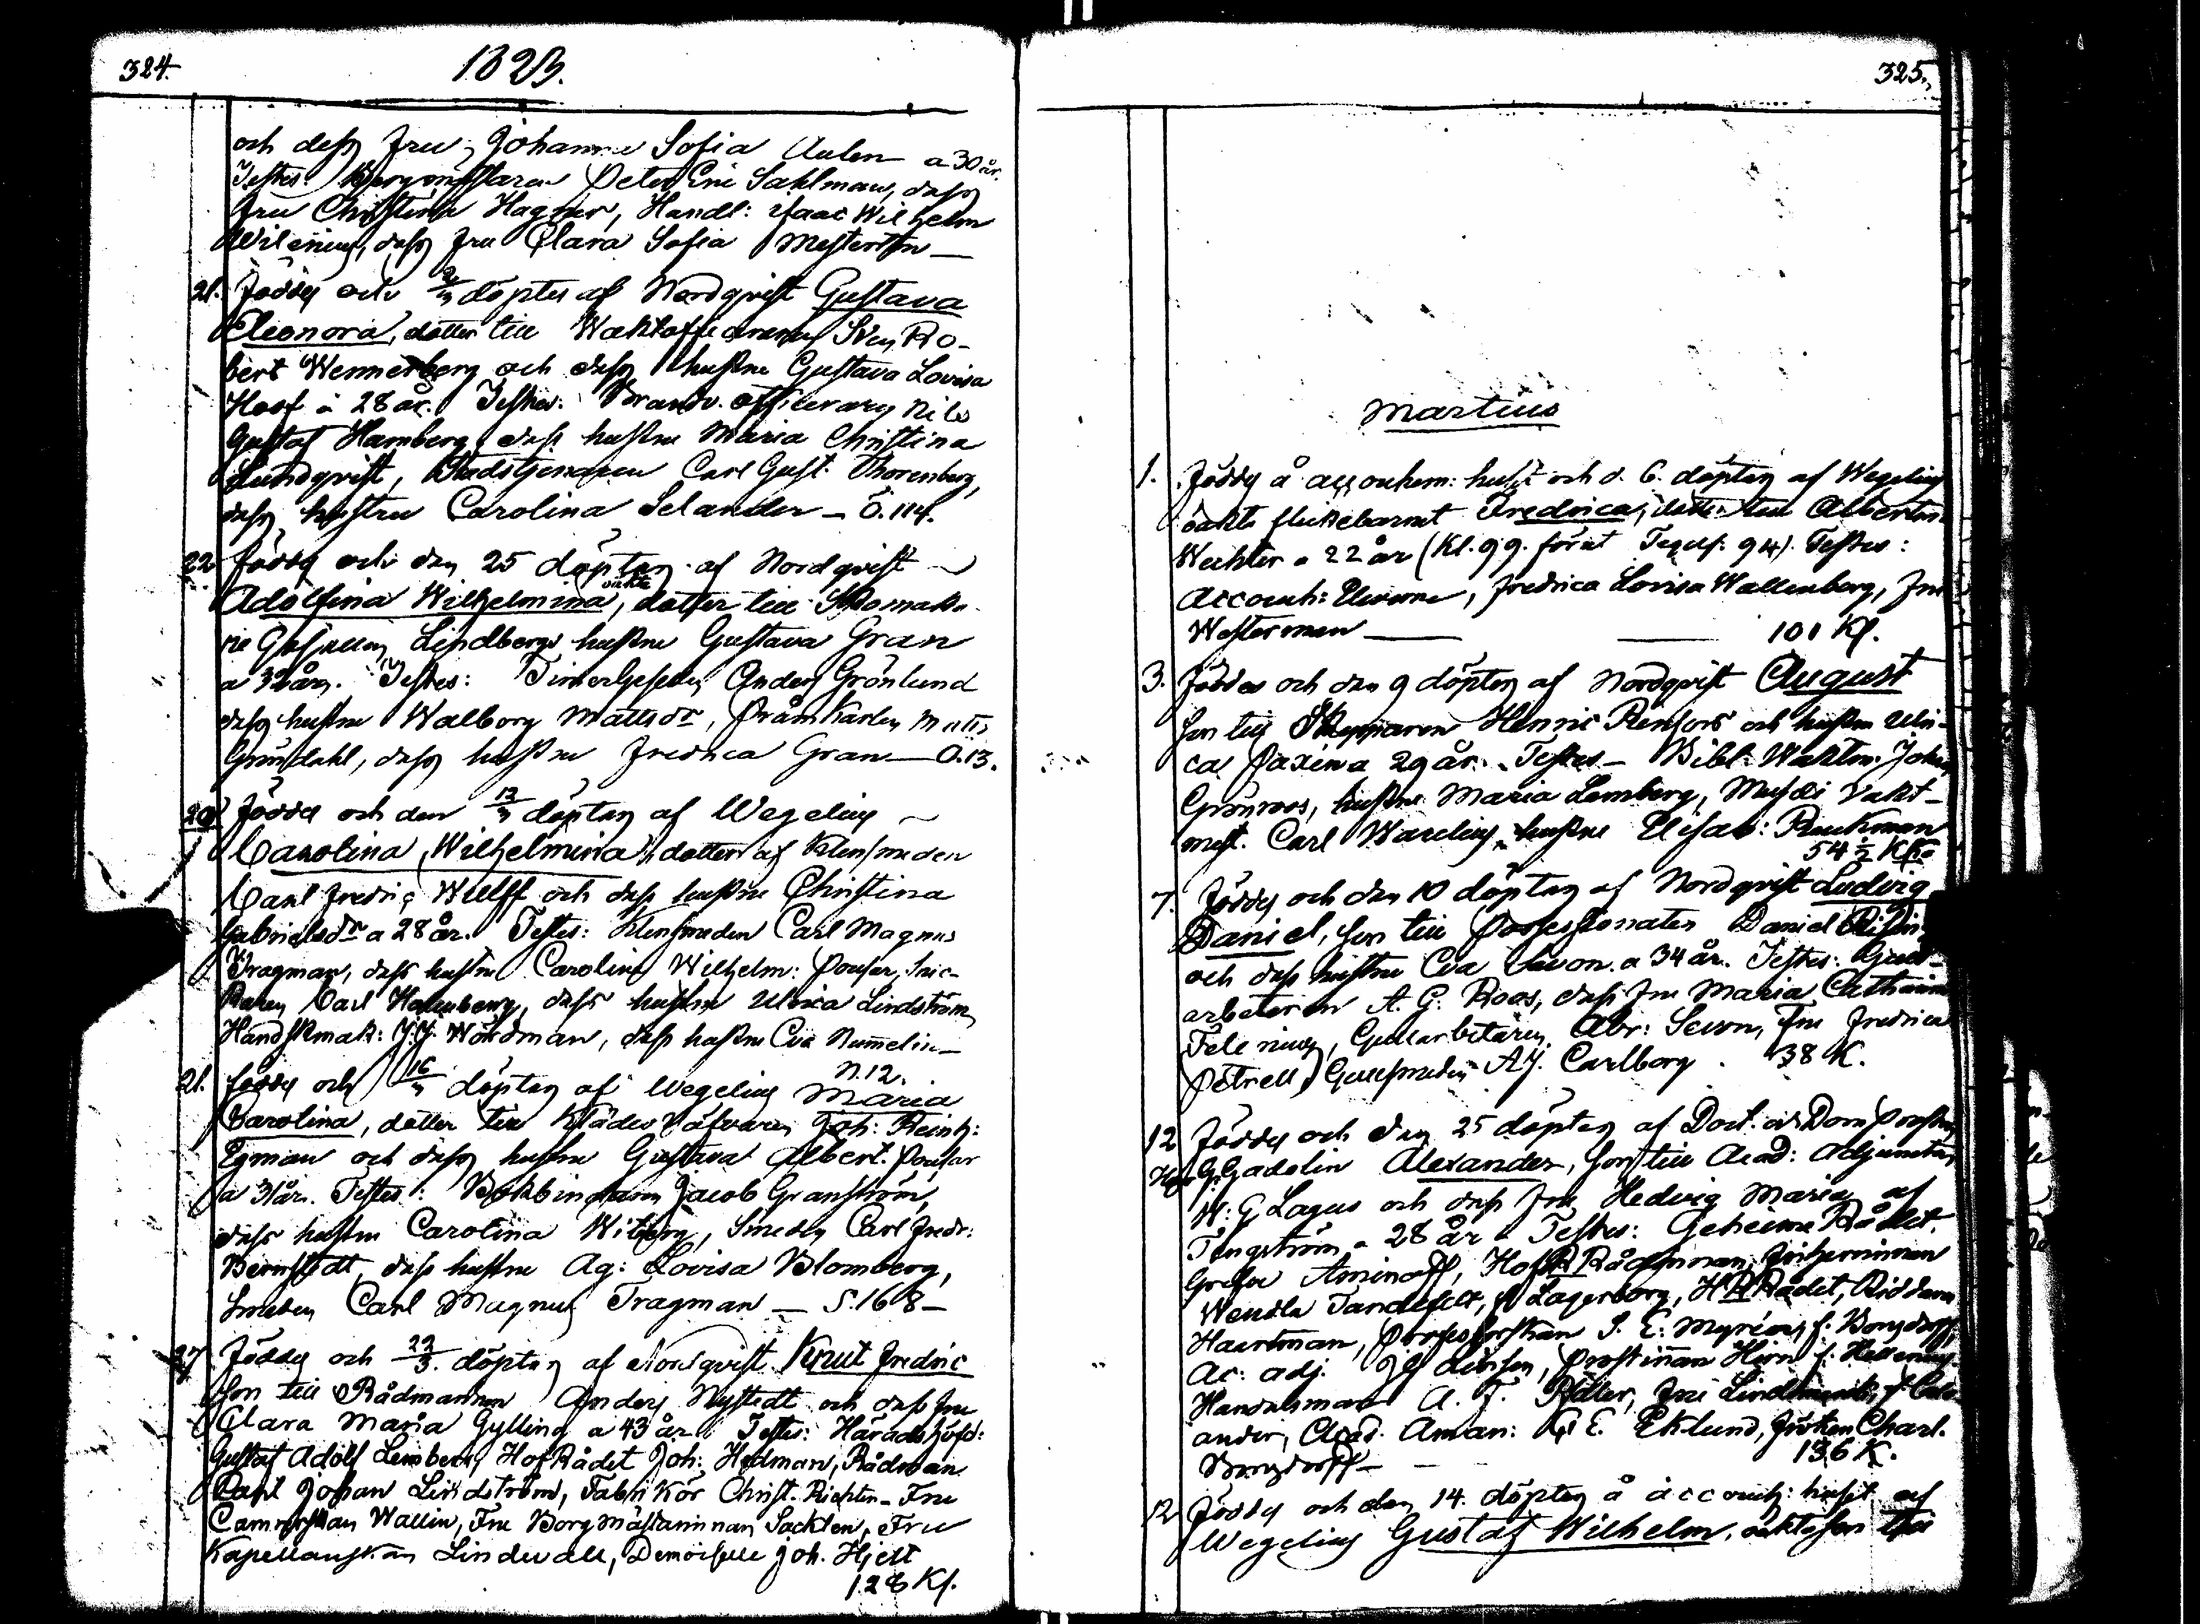 324.
1823.
och dess fru Johanna Sofia Aulen a 30 år.
Testes: Borgmästaren Peter Eric Sahlman, dess
fru Christina Hagner, Handl: Isaac Wilhelm
Wilenius, dess fru Clara Sofia Mesterton —
21. Föddes och 2/3 döptes af Nordqvist Gustava
Eleonora, dotter till Waktofficeraren Sven Ro-
bert Wennerberg och dess hustru Gustava Lovisa
Hoof a 28 år. Testes: Brandv. officeraren Nils
Gustaf Hamberg, dess hustru Maria Christina
Lundqvist, Stadstjenaren Carl Gust. Thorenberg,
dess hustru Carolina Selander — Ö. 114.
22 Föddes och den 25 döptes af Nordqvist
Adolfina Wilhelmina, oäkta dotter till Skomaka-
re Gesällen Lindbergs hustru Gustava Gran
a 32 år. Testes: Timmer Gesällen Anders Grönlund
dess hustru Walborg Mattsdr, Pråmkarlen Matts
Gröndahl, dess hustru Fredrica Gran — Ö. 13.
20 Föddes och den 12/3 döptes af Wegelius
Carolina Wilhelmina, dotter af Klensmeden
Carl Fredric Wulff och dess hustru Christina
Gabrielsdr a 28 år. Testes: Klensmeden Carl Magnus
Tragman, dess hustru Carolina Wilhelm: Ponsar, Snic-
karen Carl Hallenberg, dess hustru Ulrica Lindström,
Handskmak: J.J. Wördman, dess hustru Eva Nummelin —
N. 12.
21. Föddes och 16/3 döptes af Wegelius Maria
Carolina, dotter till Klädesväfvaren Joh: Reinh:
Egman och dess hustru Gustava Albert. Ponsar
a 31 år. Testes: Bokbindaren Jacob Granström,
dess hustru Carolina Wiberg, Smeden Carl Fredr:
Bernstedt, dess hustru Ag: Lovisa Blomberg,
Smeden Carl Magnus Tragman — S. 168 —
27 Föddes och 22/3 döptes af Nordqvist Knut Fredric
Son till Rådmannen Anders Nystedt och dess fru
Clara Maria Gylling a 43 år. Testes: Häradshöfd:
Gustaf Adolf Lemberg, HofRådet Joh: Hedman, Rådman
Carl Johan Lindström, Fabrikör Christ. Richter — Fru
Wallin, Fru Borgmästarinnan Sacklen, Fru
Kapellanskan Lindwall, Demoiselle Joh. Hjelt
128 Kl.
325.
Martius
1. Föddes å accouchem: huset och d. 6. döptes af Wegelius
oäkta flickebarnet Fredrica, dotter till Albertina
Wechter a 22 år (Kl. 99. förut 94). Testes:
Accouch: Eleverne, Fredrica Lovisa Wallenberg, Fru
Westerman — 101 Kl.
3. Föddes och den 9 döptes af Nordqvist August
son till Skepparen Henric Renfors och hustru Ulri-
ca Paxina 29 år. Testes — Bibl: Waktm: Johan
Grönroos, hustru Maria Lemberg, Musei Vakt-
mest. Carl Warelius, hustru Elisab: Ruukman
54 1/2 Kl.
7. Föddes och den 10 döptes af Nordqvist Ludvig
Daniel, son till Possessionaten Daniel
och dess hustru Eva Sevon a 34 år. Testes: Guld-
arbetaren A. G. Roos, dess fru Maria Catharina
Felenius, Guldarbetaren Abr: Sevon, fru Fredrica
Petrell, Guldsmeden A.J. Carlborg. 38 K.
12 Föddes och den 25 döptes af Doct. och Domprosten
G. Gadolin Alexander, son till Acad: Adjuncten
W: G Lagus och dess fru Hedvig Maria af
Tengström a 28 år. Testes: Geheime Rådet
Grefve Aminoff, HofR Rådinnan, Friherrinnan
Wendla Tandefelt, f. Lagerborg, HR Rådet, Riddaren
Haartman, Professorskan S. E. Myréen, f. Bonsdorff,
Ac: adj. Prostinnan Hirn f. Hellenius
Handelsman A. F. Rådler, Fru
ander, Acad. Aman: G E. Eklund, fröken Charl.
Bonsdorff — 136 K.
12 Föddes och den 14. döptes å accouch: huset af
Wegelius Gustaf Wilhelm, oäkta son till